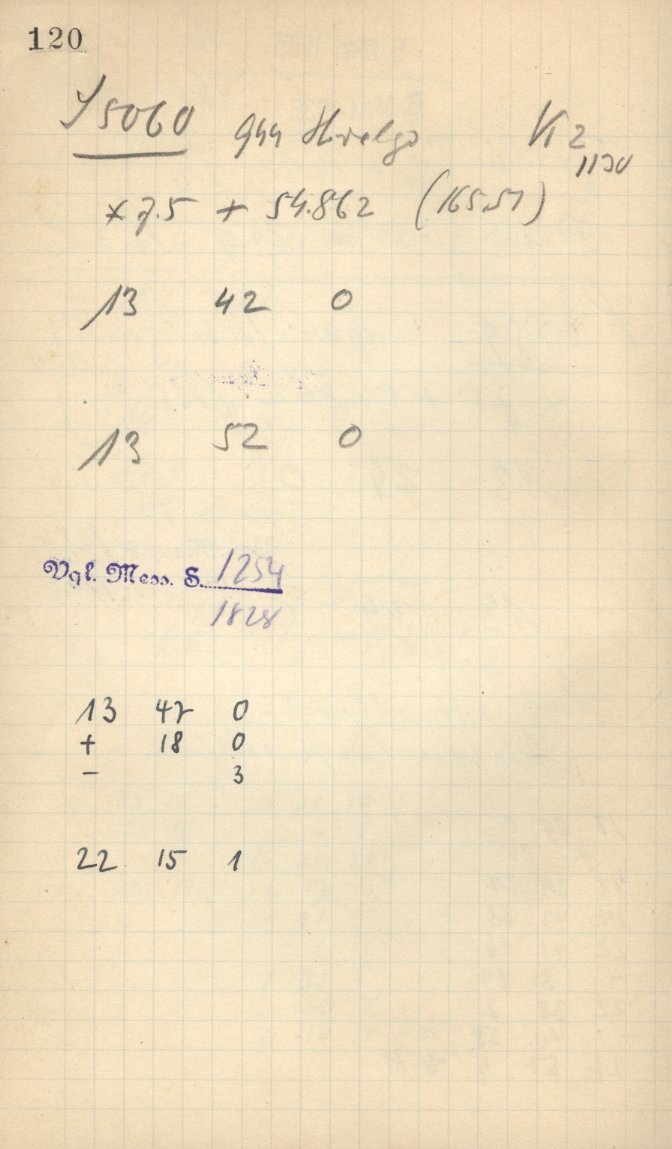 120
Y5060 944 Hidalgo K2
1130
* 7.5 + 54.862 (165.51)
13 42 0
13 52 0
Vgl. Mess. S. 1254
1828
13 47 0
+ 18 0
- 3
22 15 1